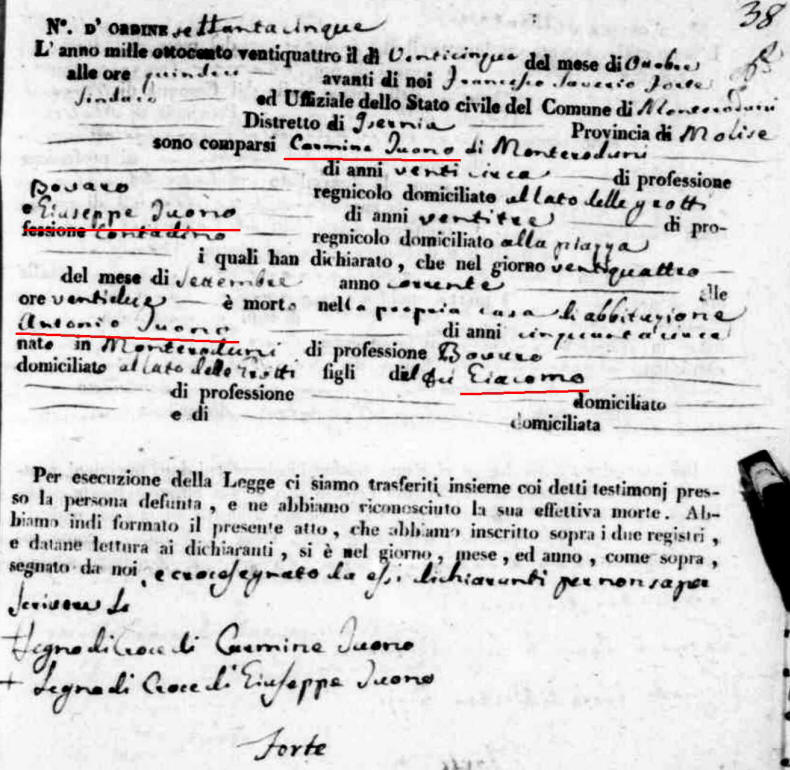 38
N.º D' ORDINE settantacinque
L' anno mille ottocento ventiquattro il dì Venticinque del mese di
alle ore quindici avanti di noi Francesco Saverio Forte
Sindaco ed Uffiziale dello Stato civile del Comune di Monteroduni
Distretto di Isernia Provincia di Molise
sono comparsi Carmine Iuono di Monteroduni
di anni venti di professione
Bovaro regnicolo domiciliato al lato delle grotti
e Giuseppe Iuono di anni ventitre di pro-
fessione Contadino regnicolo domiciliato alla piazza
i quali han dichiarato, che nel giorno ventiquattro
del mese di anno corrente alle
ore ventidue è morto nella propria casa di abbitazione
Antonio Iuono di anni cinquanta
nato in Monteroduni di professione Bovaro
domiciliato al lato delle grotti figli del fù Giacomo
di professione domiciliato
e di domiciliata
Per esecuzione della Legge ci siamo trasferiti insieme coi detti testimonj pres-
so la persona defunta, e ne abbiamo riconosciuto la sua effettiva morte. Ab-
biamo indi formato il presente atto, che abbiamo inscritto sopra i due registri,
e datane lettura ai dichiaranti, si è nel giorno, mese, ed anno, come sopra,
segnato da noi, e crocesegnato da essi dichiaranti per non saper
scrivere
+ Segno di Croce di Carmine Iuono
+ Segno di Croce di Giuseppe Iuono
Forte